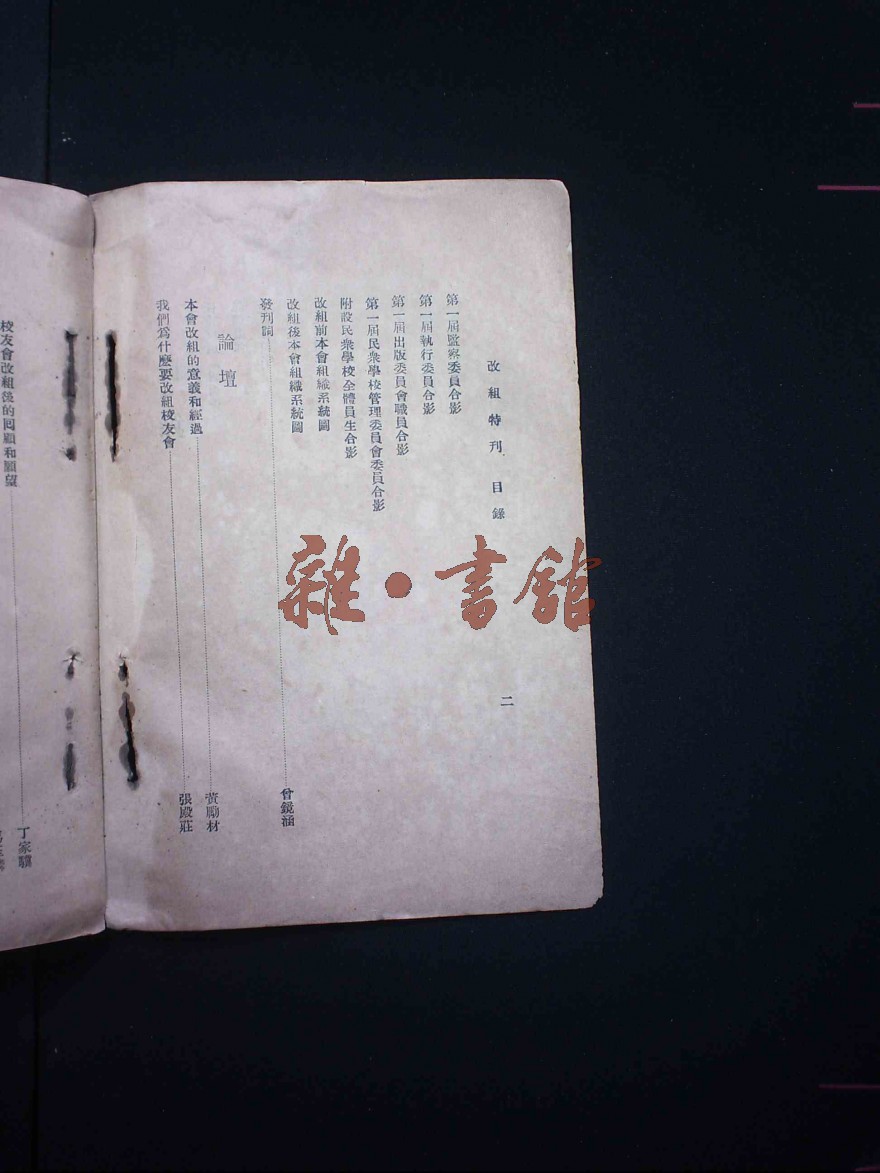 改組特刊 目錄
二
第一屆監察委員合影
第一屆執行委員合影
第一屆出版委員會職員合影
第一屆民衆學校管理委員會委員合影
附設民衆學校全體員生合影
改組前本會組織系統圖
改組後本會組織系統圖
發刊詞 曾鏡涵
論壇
本會改組的意義和經過 黃勵材
我們爲什麼要改組校友會 張殿莊
校友會改組後的囘顧和願望 丁家驥
雜·書館